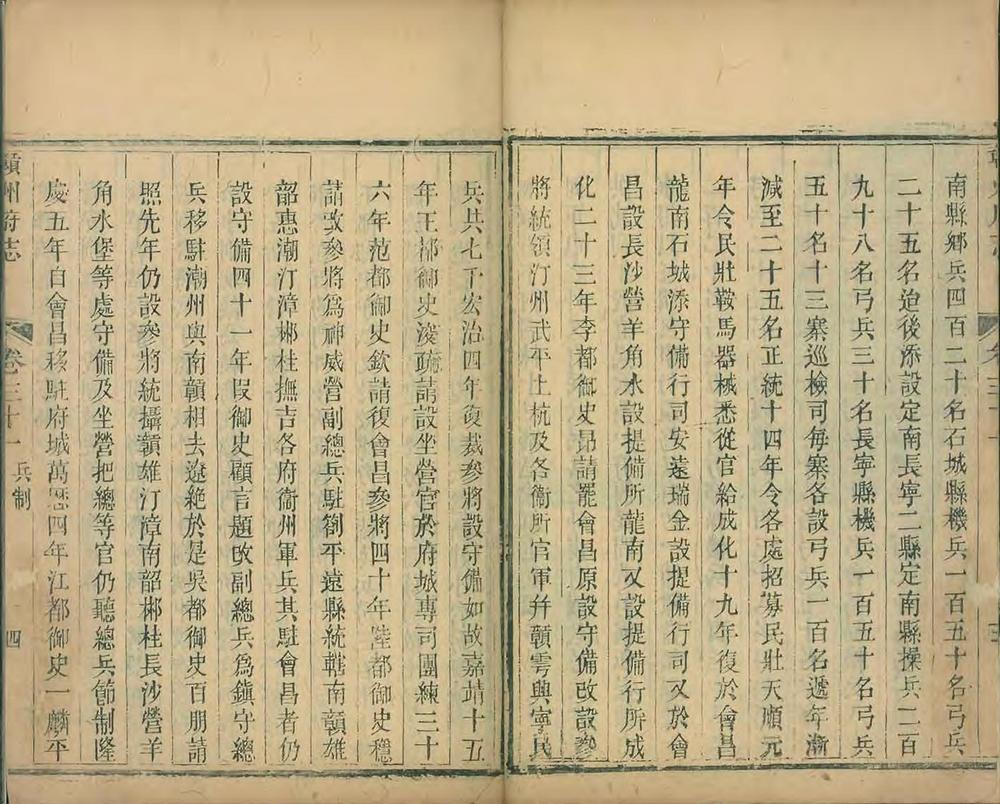 南縣鄉兵四百二十名石城縣機兵一百五十名弓兵
二十五名迨後添設定南長寧二縣定南縣操兵二百
九十八名弓兵三十名長寧縣機兵一百五十名弓兵
五十名十三寨巡檢司每寨各設弓兵一百名遞年漸
減至二十五名正統十四年令各處招募民壯天順元
年令民壯鞍馬器械悉從官給成化十九年復於會昌
龍南石城添守備行司安遠瑞金設提備行司又於會
昌設長沙營羊角水設提備所龍南又設提備行所成
化二十三年李都御史昂請罷會昌原設守備改設參
將統領汀州武平上杭及各衞所官軍并贛雩興寧民
兵共七千宏治四年復裁參將設守備如故嘉靖十五
年王都御史浚疏請設坐營官於府城專司團練三十
六年范都御史欽請復會昌參將四十年陸都御史穩
請改參將爲神威營副總兵駐劄平遠縣統轄南贛雄
韶惠潮汀漳郴桂撫吉各府衞州軍兵其駐會昌者仍
設守備四十一年叚御史顧言題改副總兵爲鎮守總
兵移駐潮州與南贛相去遼絕於是吳都御史百朋請
照先年仍設參將統攝贛雄汀漳南韶郴桂長沙營羊
角水堡等處守備及坐營把總等官仍聽總兵節制隆
慶五年自會昌移駐府城萬厯四年江都御史一麟平
贛州府志
卷三十一
兵制
四